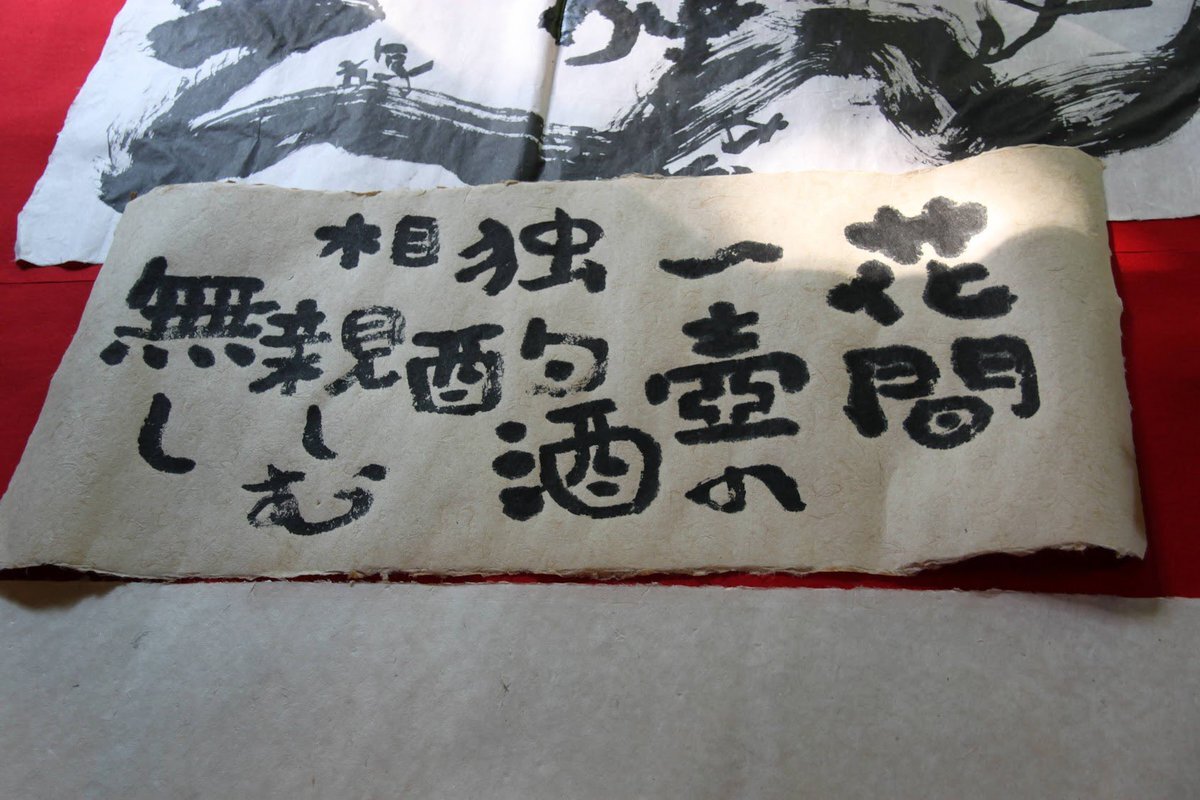 花間
一壺の
酒
独酌
相親しむ
無し